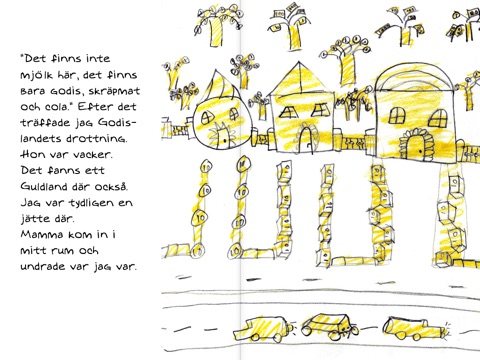 "Det finns inte
mjölk här, det finns
bara godis, skräpmat
och cola." Efter det
träffade jag Godis-
landets drottning.
Hon var vacker.
Det fanns ett
Guldland där också.
Jag var tydligen en
jätte där.
Mamma kom in i
mitt rum och
undrade var jag var.
10
10
10
10
10
10